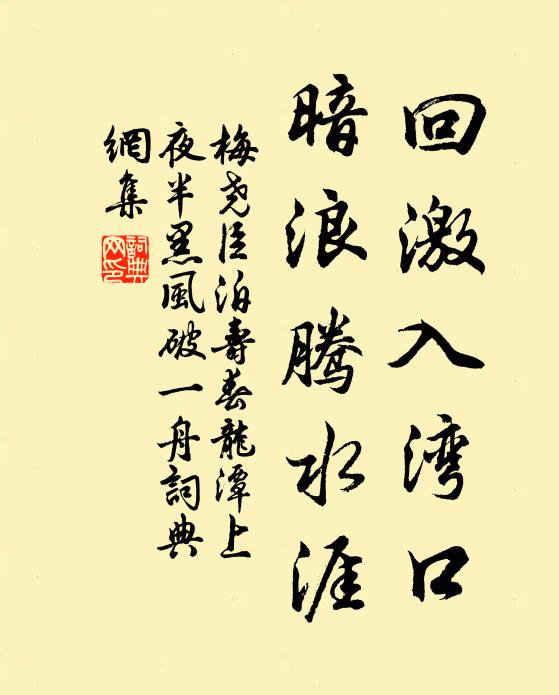 回激入湾口
暗浪腾水涯
梅尧臣泊壽春龍潭上
夜半黑風破一舟詞典
網集
詞典
网印